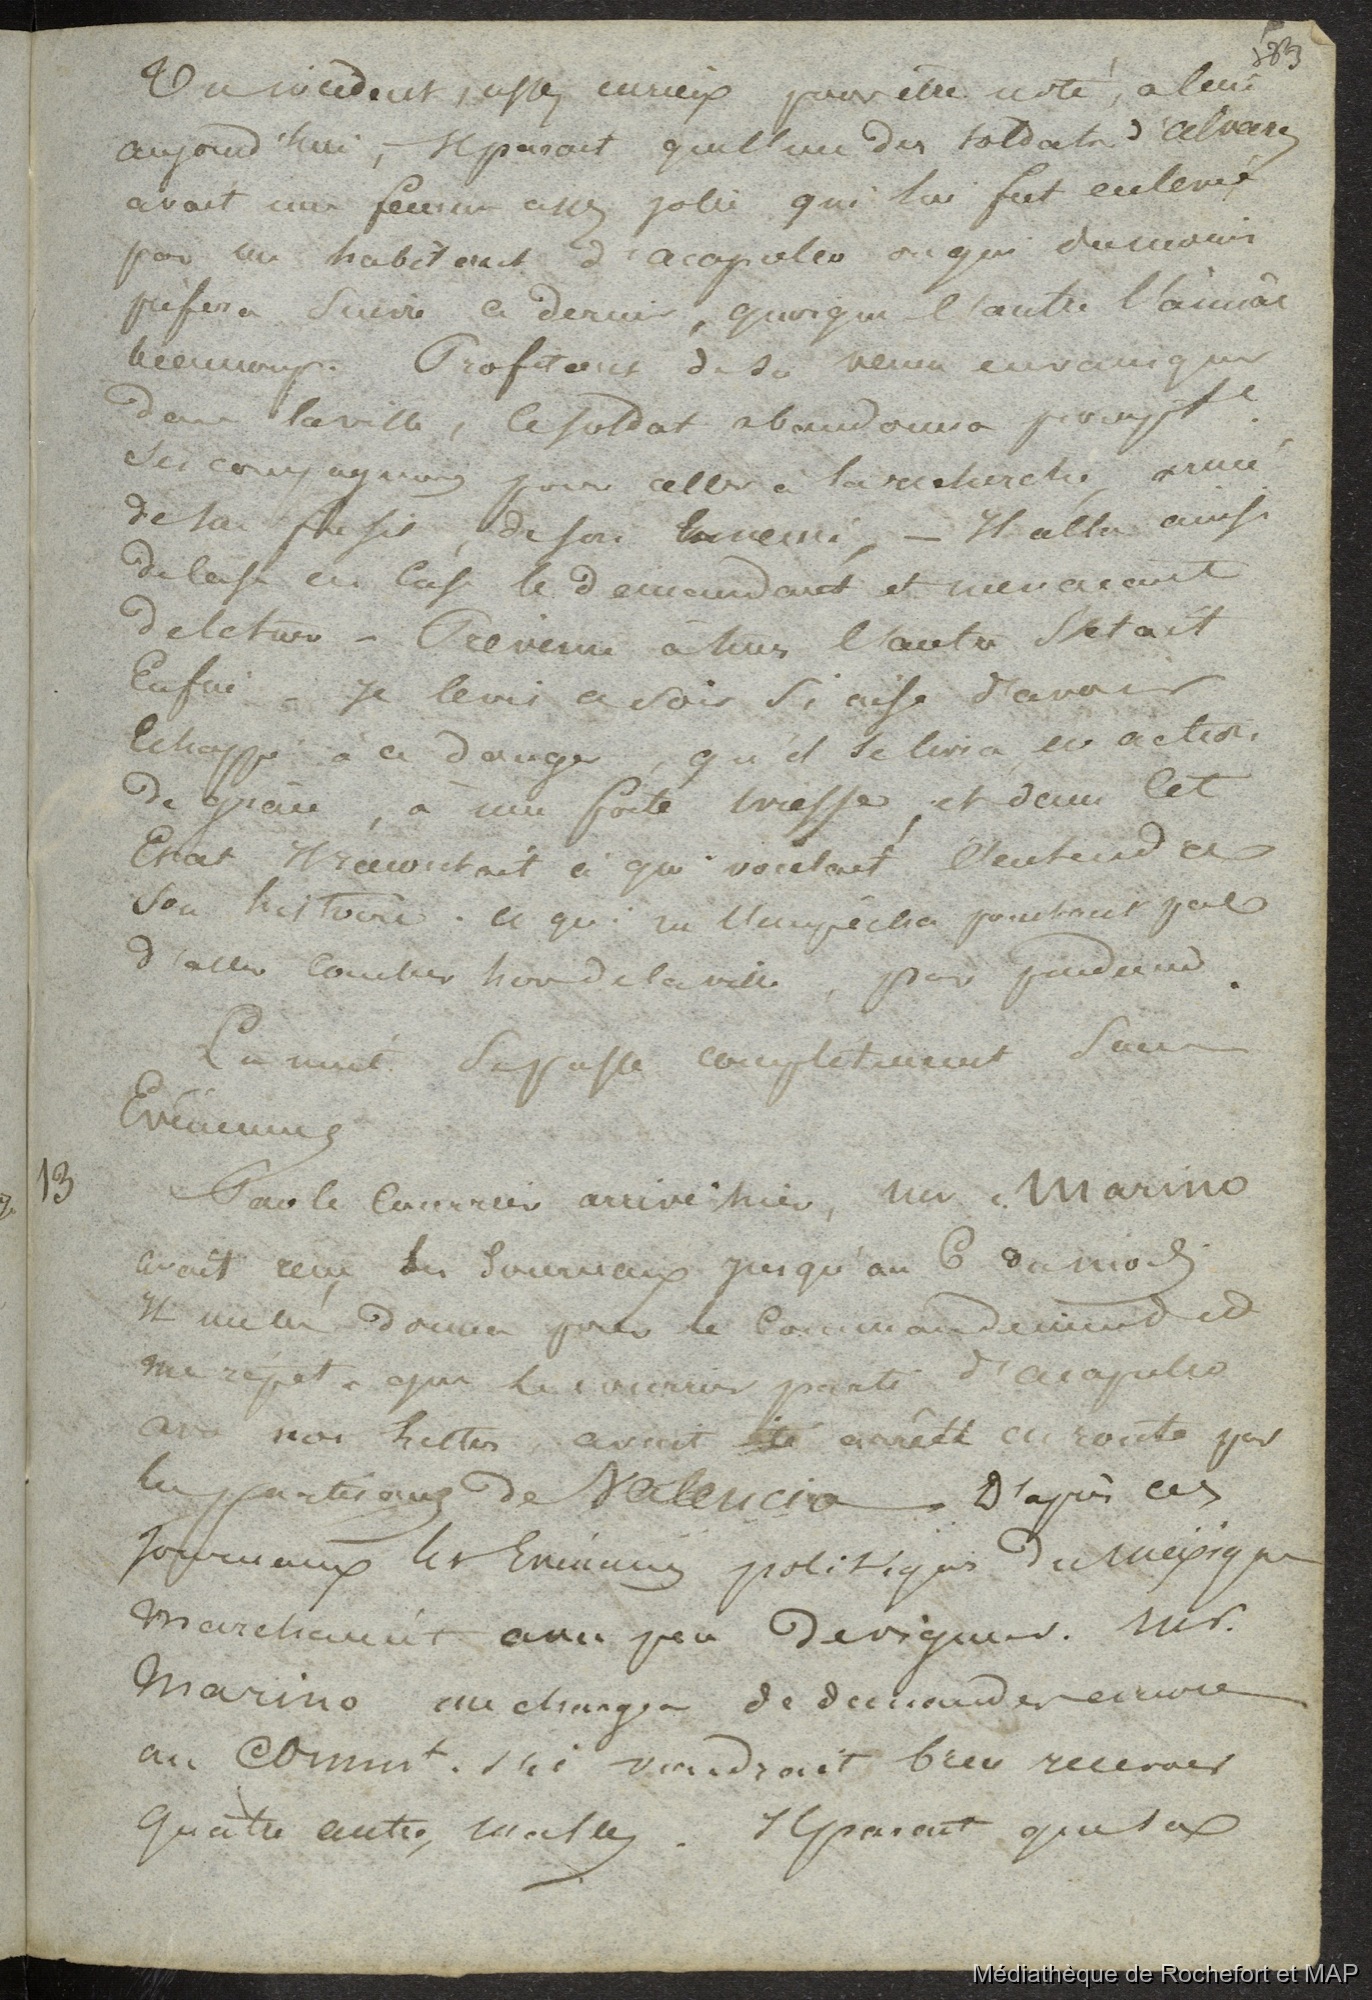 183
Un incident, assez curieux pour être noté, a lieu
aujourd'hui, – Il parait que l'un des soldats d'alvarez
avait une femme assez jolie qui lui fut enlevée
par un habitant d'acapulco ou qui du moins
préfera suivre ce dernier, quoique l'autre l'aimât
beaucoup. Profitant de sa venue en vainqueur
dans la ville, le soldat abandonna prompt.t
ses compagnons pour aller à la recherche, armé
de son fusil, de son Ennemi, – Il alla ainsi
de Case en Case le demandant et menacant
de le tuer – Prévenu à tems l'autre S'etait
Enfui. Je le vis ce soir si aise d'avoir
Echappé à ce danger, qu'il se livra, en action
de grâce, à une forte ivresse, et dans Cet
Etat Il racontait à qui voulait l'entendre
Son histoire. ce qui ne l'empêcha pourtant pas
d'aller Coucher hors de la ville, par prudence.
La nuit Se passe complètement Sans
Evénemens
13
Par le Courrier arrivé hier, Mr. Marino
avait reçu les Journaux jusqu'au 6 du mois
Il me les donna pour le Commandement et
me répéta que le courrier parti d'acapulco
avec nos lettres, avait été arrêté en route par
les partisans de Valencia. D'après ces
journaux les Evénemens politiques du mexique
marchaient avec peu de vigueur. Mr.
Marino me chargea de demander encore
au Comm.t s'il voudrait bien recevoir
quatre autres malles. Il parait que sa
Médiathèque de Rochefort et MAP